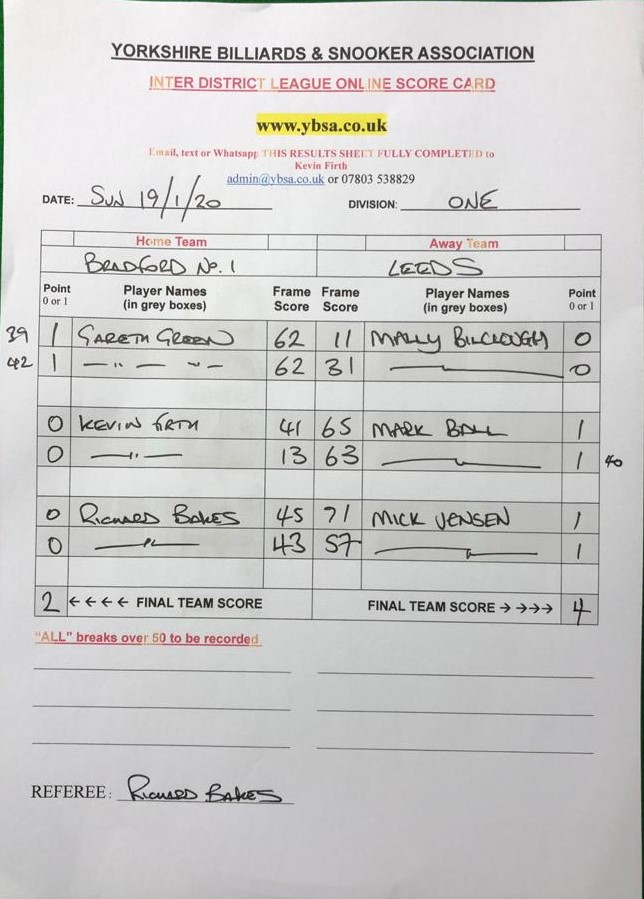 YORKSHIRE BILLIARDS & SNOOKER ASSOCIATION
INTER DISTRICT LEAGUE ONLINE SCORE CARD
www.ybsa.co.uk
Email, text or Whatsapp THIS RESULTS SHEET FULLY COMPLETED to
Kevin Firth
admin@ybsa.co.uk or 07803 538829
DATE: SUN 19/1/20 DIVISION: ONE
Home Team Away Team
BRADFORD No. 1 LEEDS
Point 0 or 1 Player Names (in grey boxes) Frame Score Frame Score Player Names (in grey boxes) Point 0 or 1
39 1 GARETH GREEN 62 11 MALLY BILLCLOUGH 0
42 1 — " — " — 62 31 0
0 KEVIN FIRTH 41 65 MARK BALL 1
0 — " — 13 63 1 40
0 RICHARD BAKES 45 71 MICK JENSEN 1
0 — " — 43 57 1
2 ←←←← FINAL TEAM SCORE FINAL TEAM SCORE →→→→ 4
"ALL" breaks over 50 to be recorded
REFEREE: RICHARD BAKES